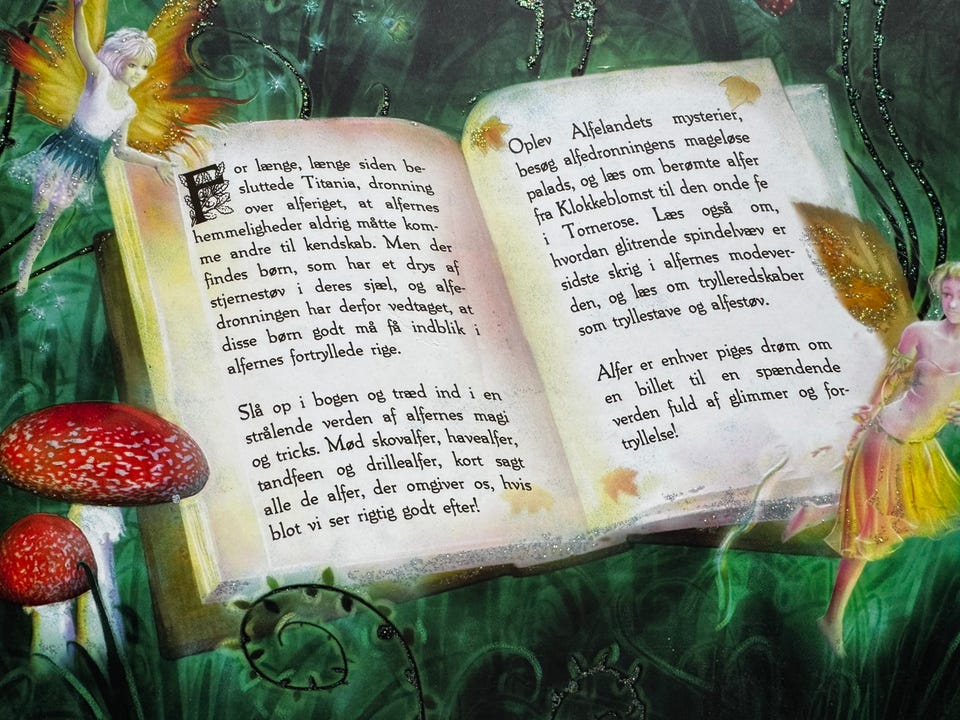 For længe, længe siden be-
sluttede Titania, dronning
over alferiget, at alfernes
hemmeligheder aldrig måtte kom-
me andre til kendskab. Men der
findes børn, som har et drys af
stjernestøv i deres sjæl, og alfe-
dronningen har derfor vedtaget, at
disse børn godt må få indblik i
alfernes fortryllede rige.
Slå op i bogen og træd ind i en
strålende verden af alfernes magi
og tricks. Mød skovalfer, havealfer,
tandfeen og drillealfer, kort sagt
alle de alfer, der omgiver os, hvis
blot vi ser rigtig godt efter!
Oplev Alfelandets mysterier,
besøg alfedronningens mageløse
palads, og læs om berømte alfer
fra Klokkeblomst til den onde fe
i Tornerose. Læs også om,
hvordan glitrende spindelvæv er
sidste skrig i alfernes modever-
den, og læs om trylleredskaber
som tryllestave og alfestøv.
Alfer er enhver piges drøm om
en billet til en spændende
verden fuld af glimmer og for-
tryllelse!